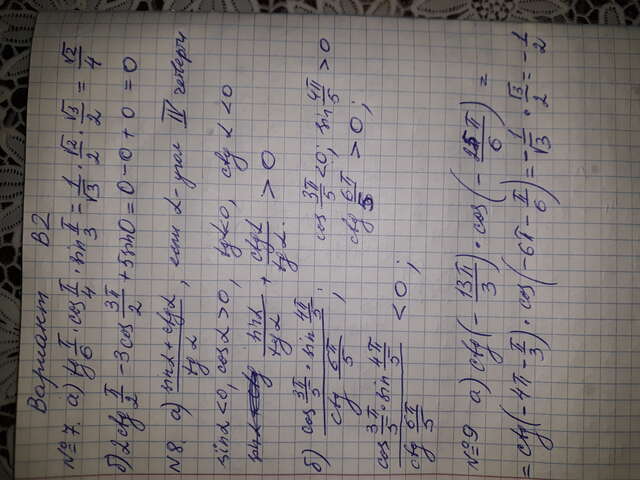 Вариант В2
№7. а) tg π/6 · cos π/4 · sin π/3 = 1/√3 · √2/2 · √3/2 = √2/4
б) 2ctg π/2 - 3cos 3π/2 + 5sin0 = 0 - 0 + 0 = 0
N8. а) (sinα + ctgα)/tgα, если α - угол IV четверти
sinα < 0, cosα > 0, tgα < 0, ctgα < 0
sinα/tgα + ctgα/tgα > 0
б) (cos 3π/5 · sin 4π/5)/(ctg 6π/5); cos 3π/5 < 0; sin 4π/5 > 0
ctg 6π/5 > 0;
(cos 3π/5 · sin 4π/5)/(ctg 6π/5) < 0;
№9 а) ctg(-13π/3) · cos(-π/6) =
= ctg(-4π - π/3) · cos(-6π - π/6) = -1/√3 · √3/2 = -1/2